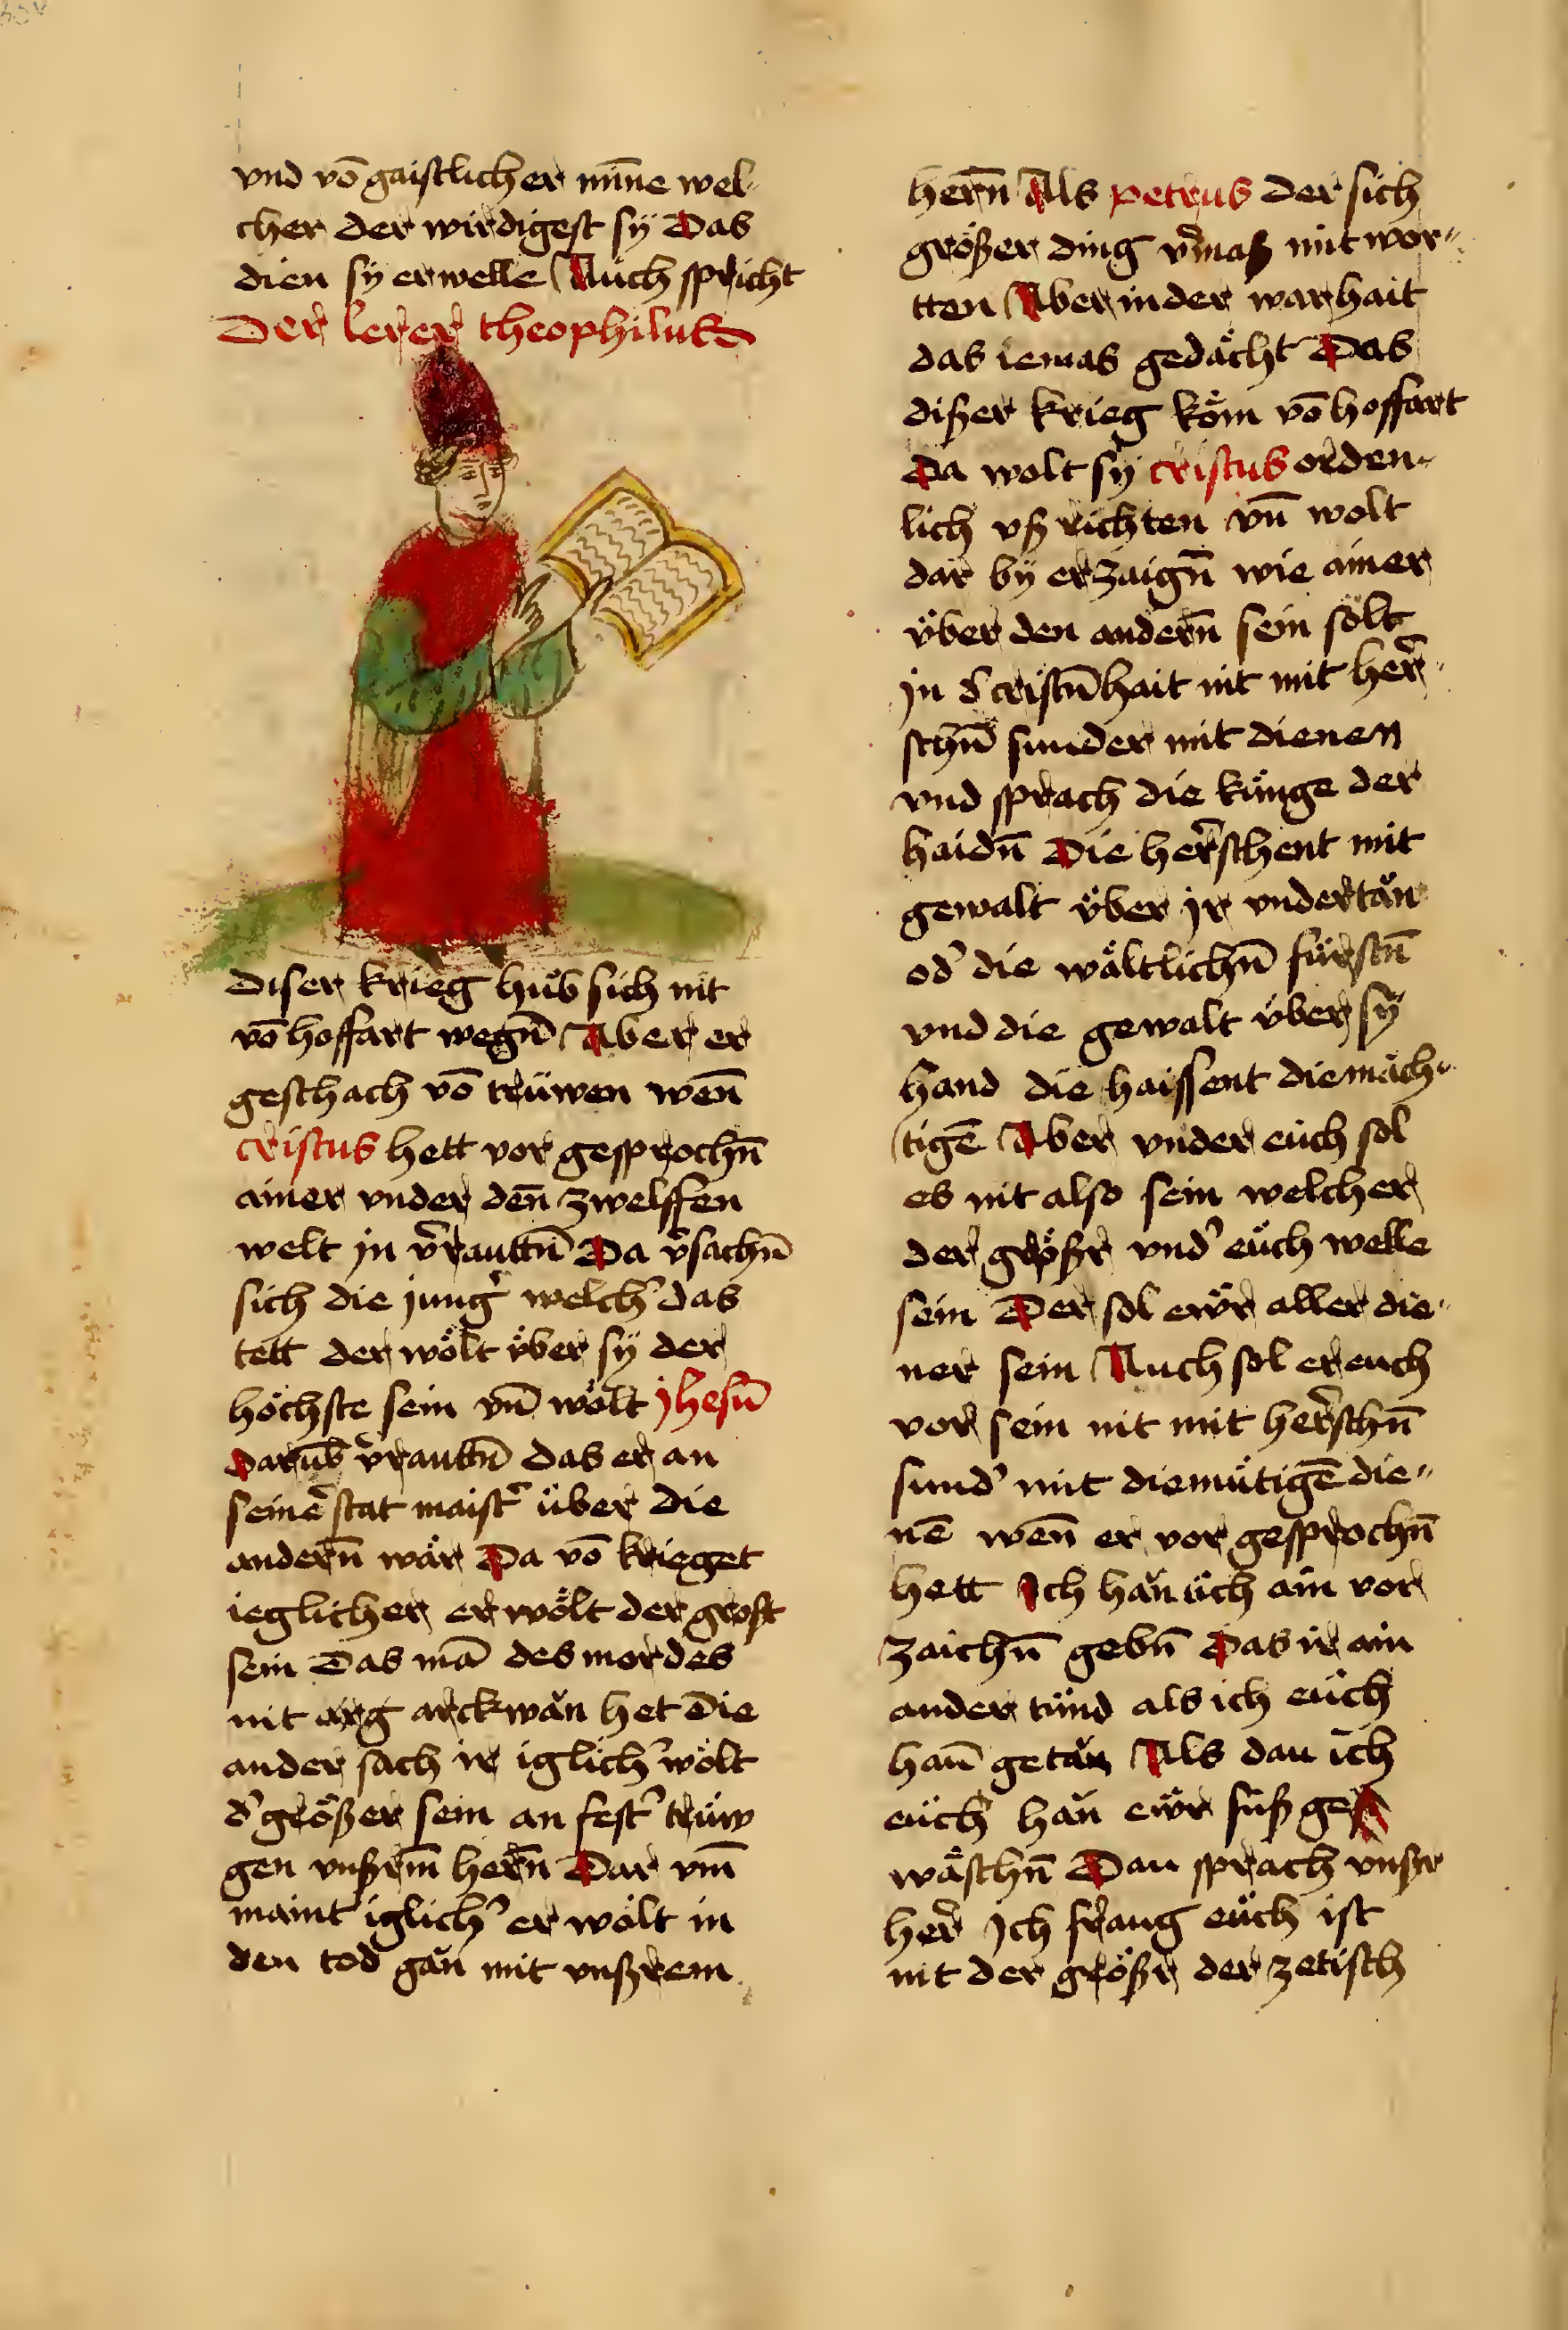 vnd vō gaistlicher mīne wel-
cher der wirdigest sÿ Das
dien sÿ erwelle Auch spricht
Der lerer theophilus
diser krieg hüb sich nit
vō hoffart wegn̄ Aber er
geschach vō trüwen wen̄
cristus hett vor gesprochn̄
ainer vnder den̄ zwelffen
welt jn v̄rauttn̄ Da v̄sachn̄
sich die jung̉ welch̉ das
tett der wölt über sÿ der
höchste sein vn̄ wölt jhesū
Darūb v̄rauttn̄ das er an
seinē stat maist̉ über die
andern̄ wär Da vō krieget
ieglicher er wölt der grost
sein Das mā des mordes
nit arg arckwän het Die
ander sach ir iglich̉ wölt
d̉ größer sein an fest̉ trüw
gen vnßrm̄ hern̄ Dar vm̄
maint iglich̉ er wölt in
den tod gän mit vnßrem
hern̄ Als petrus der sich
größer ding v̄maß mit wor-
tten Aber in der warhait
das iemas gedächt Das
dißer krieg köm vō hoffart
Da wolt sÿ cristus orden-
lich vß richten vn̄ wolt
dar bÿ erzaign̄ wie ainer
über den andern̄ sein sölt
jn d̉ cristn̄hait nit mit her̄-
schn̄ sunder mit dienen
vnd sprach die künge der
haidn̄ Die her̄schent mit
gewalt über jr vndertän
od̉ die wältlichn̄ fürstn̄
vnd die gewalt über sÿ
hand die haissent die mäch-
tigē Aber vnder euch sol
es nit also sein welcher
der größr vnd̉ eüch welle
sein Der sol ewr aller die-
ner sein Auch sol er euch
vor sein nit mit her̄schn̄
sund̉ mit diemütigē die-
nē wen̄ er vor gesprochn̄
hett Ich hän üch ain vor
zaichn̄ gebn̄ Das ir ain
ander tünd als ich eüch
han̄ getän Als dan ich
eüch hän ewr füß ge
wäschn̄ Dan sprach vnßr
her̄ Ich fraug eüch ist
nit der größr der ze tisch